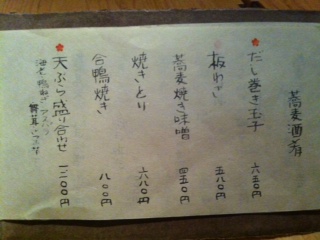 蕎麦酒肴
だし巻き玉子 六五〇円
板わさ 五八〇円
蕎麦焼き味噌 四五〇円
焼きとり 六八〇円
合鴨焼き 八〇〇円
天ぷら盛り合わせ 一二〇〇円